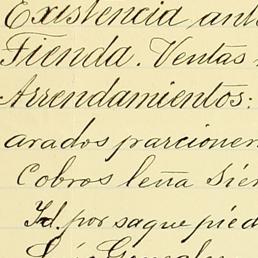 Existencia ant
Tienda. Ventas
Arrendamientos:
arados parcioner
Cobros leña Sier
Id. por saque pied
Luis Gonzalez